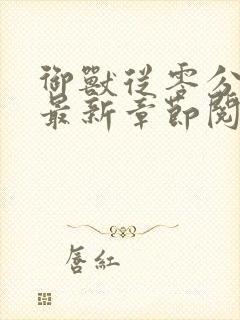 御獸從零分
最新章節閱
唇紅